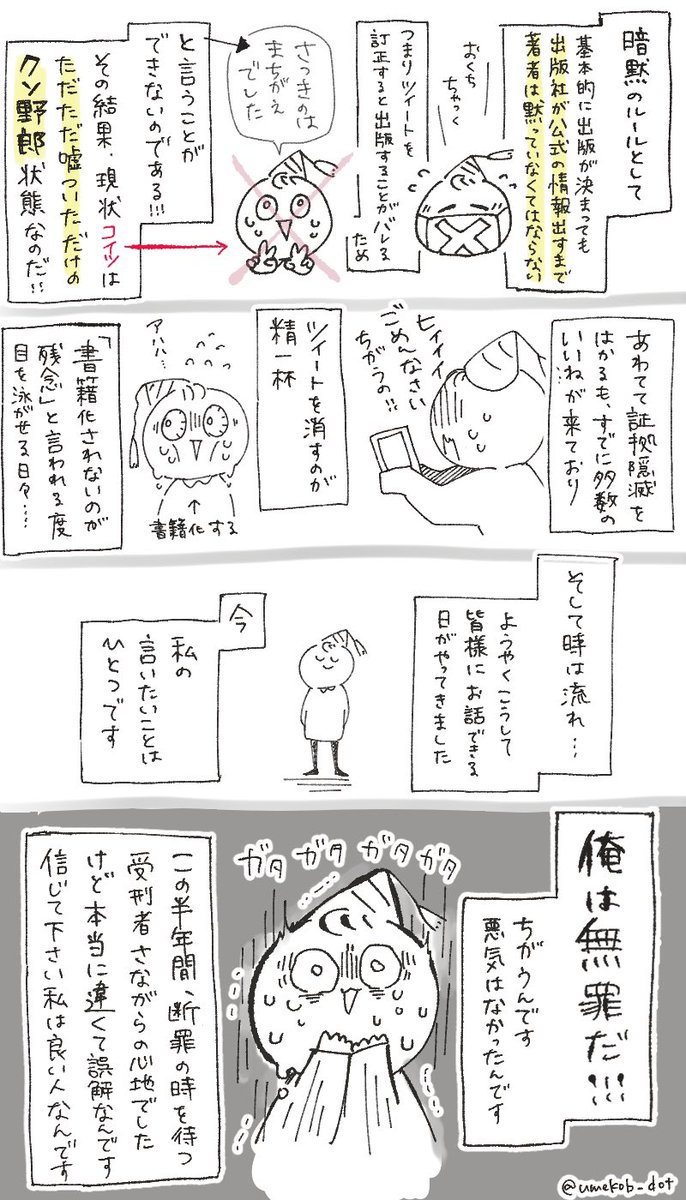 暗黙のルールとして
基本的に出版が決まっても
出版社が公式の情報出すまで
著者は黙っていなくてはならない
おくち
ちゃっく
つまりツイートを
訂正すると出版することがバレる
ため
さっきのは
まちがえ
でした
と言うことが
できないのである!!!
その結果、現状コイツは
ただただ嘘ついただけの
クソ野郎状態なのだ!!
あわてて証拠隠滅を
はかるも、すでに多数の
いいねが来ており
ヒィィィ
ごめんなさい
ちがうの!!
ツイートを消すのが
精一杯
アハハ…
↑
書籍化する
「書籍化されないのが
残念」と言われる度
目を泳がせる日々……
そして時は流れ…
ようやくこうして
皆様にお話できる
日がやってきました
今
私の
言いたいことは
ひとつです
俺は無罪だ!!!
ちがうんです
悪気はなかったんです
ガタガタガタガタ
この半年間、断罪の時を待つ
受刑者さながらの心地でした
けど本当に違くて誤解なんです
信じて下さい私は良い人なんです
@umekob_dot